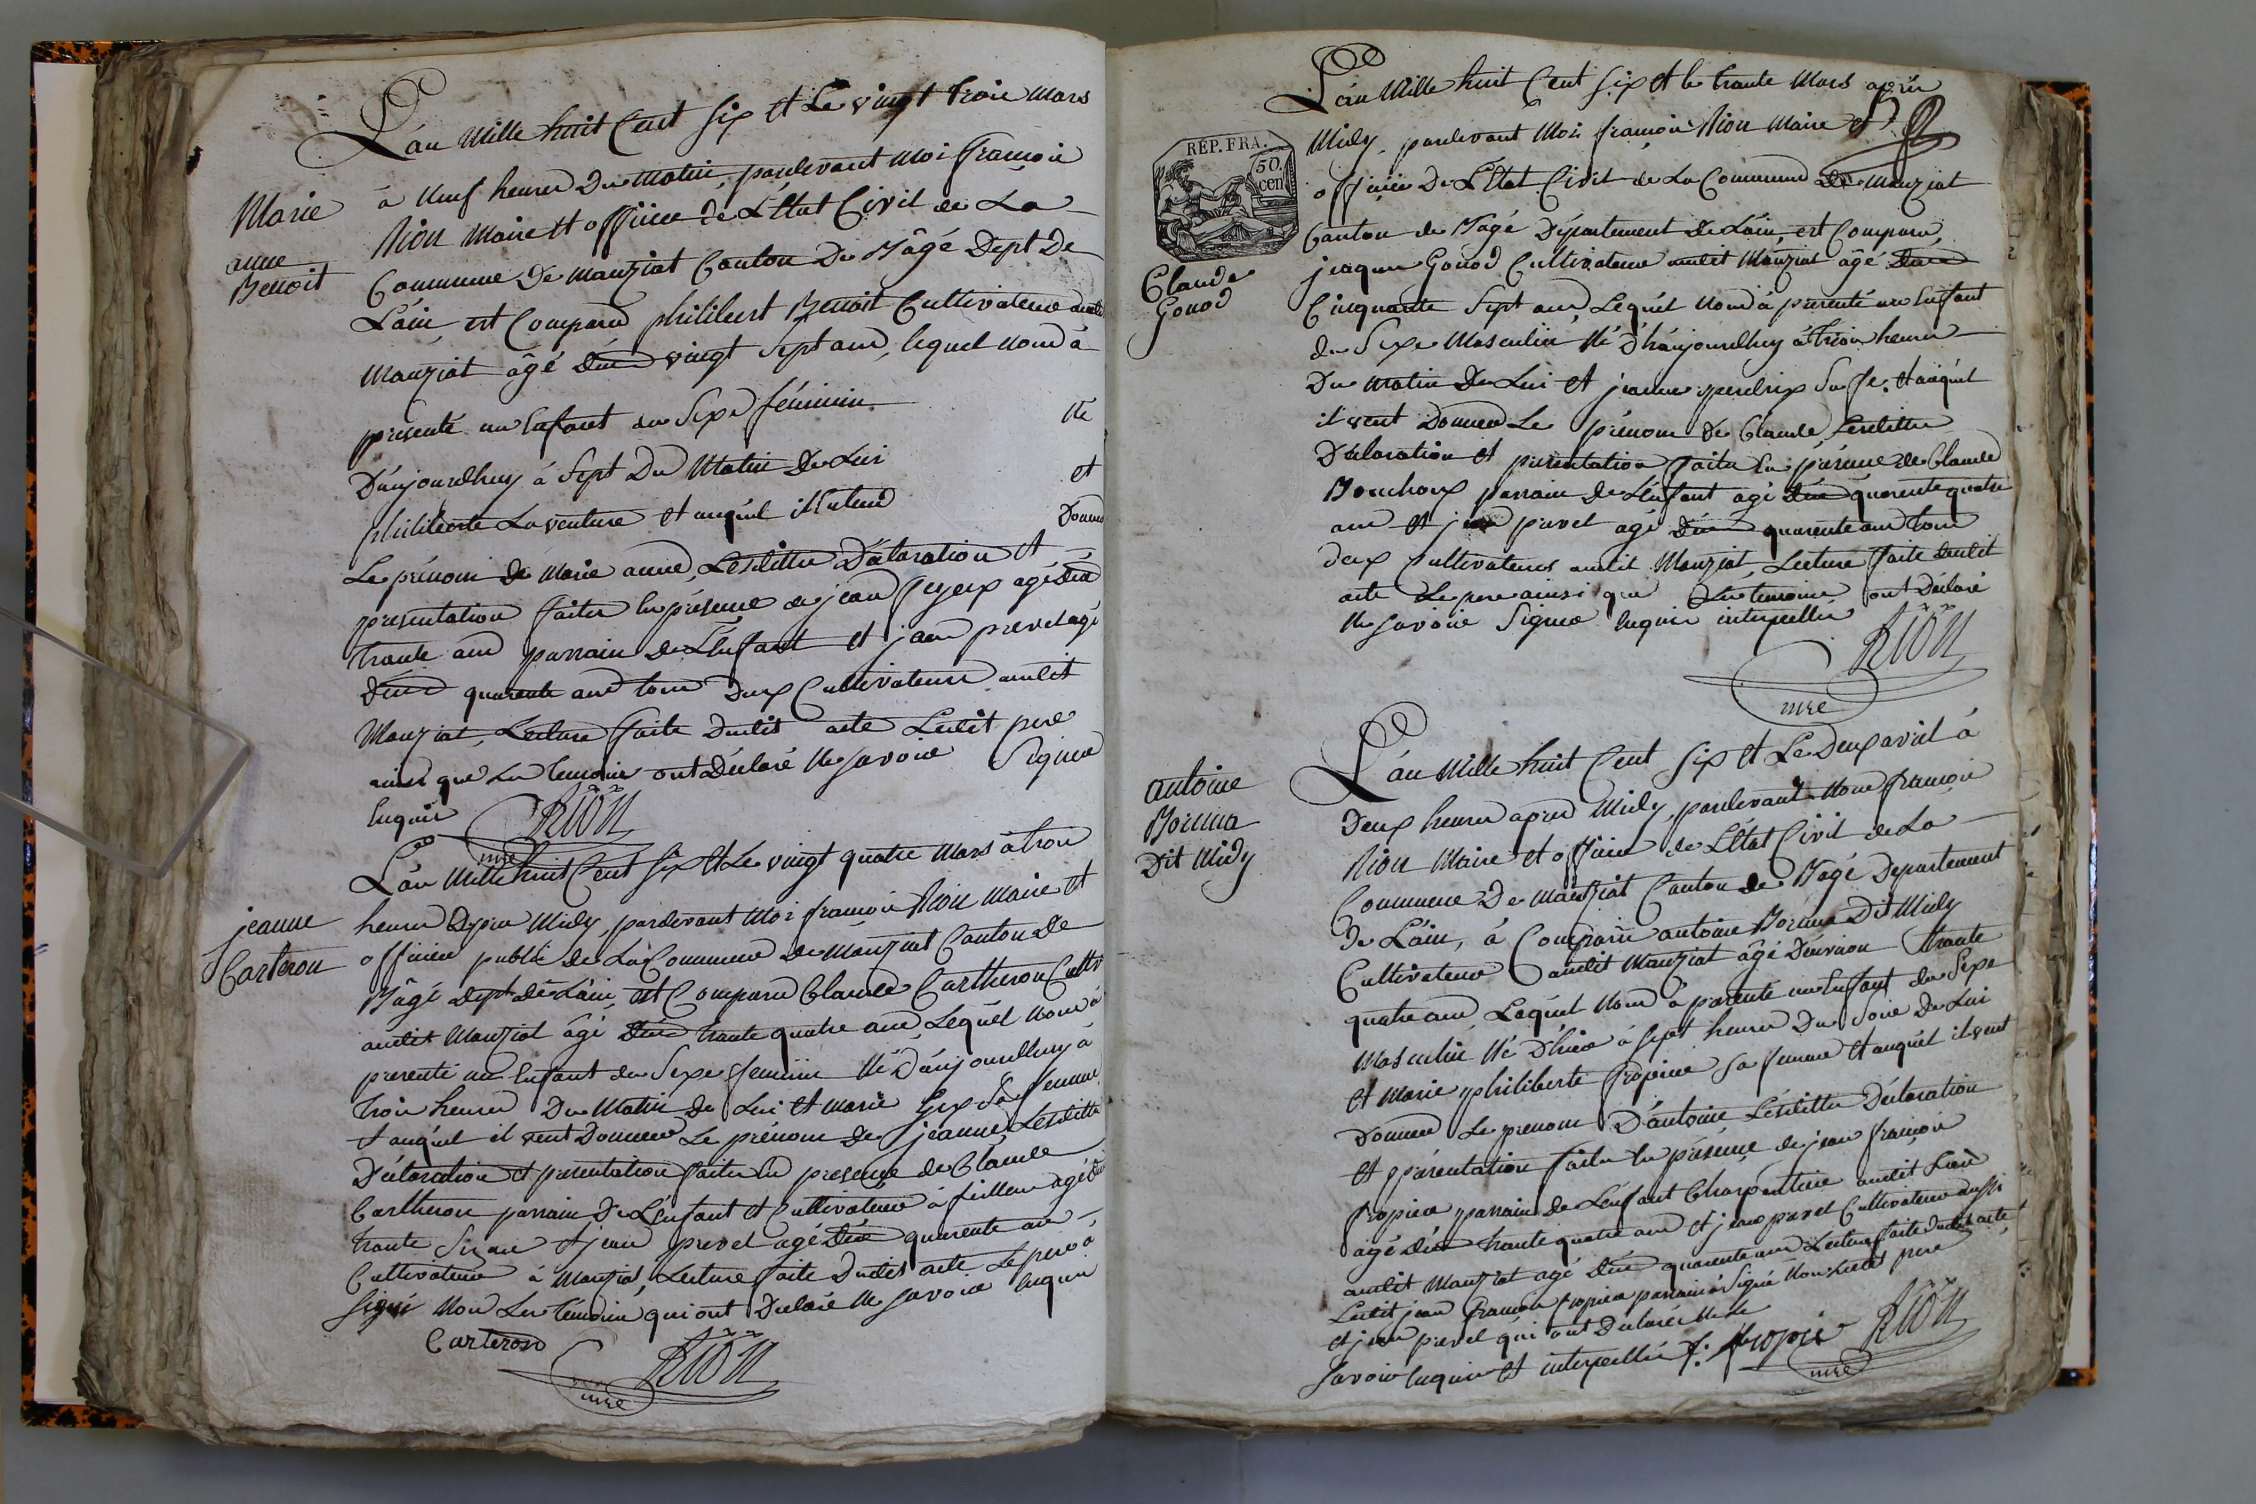 L'an Mille huit Cent Six et Le vingt trois Mars
à Neuf heures du Matin, pardevant Moi françois
Marie
anne
Benoit
Rion Maire et officier de L'état Civil de La
Commune De manziat Canton De Bâgé Dept De
L'ain, est Comparu philibert Benoit Cultivateur audit
Manziat âgé d'un vingt Sept ans, lequel nous à
presenté un Enfant du Sexe féminin né
D'aujourdhuy à Sept Du Matin De Lui et
philiberte Laventure et auquél il Entend Donner
Le prénom de Marie anne, Lesdittes Déclaration et
presentation faites En présence de jean feyeux agé d'en
trante ans parrain de L'Enfant et jean prevel agé
d'en quarente ans tous Deux Cultivateurs audit
Manziat, Lecture faite Dudit acte Ledit pere
ainsi que Les temoins ont Déclaré Ne savoir Signer
Enquis
RION
mre
L'an Mille huit Cent Six et Le vingt quatre Mars à trois
jeanne
Carteron
heures Depres Midy, pardevant Moi françois Rion Maire et
officier public de La Commune de Manziat Canton De
Bâgé Dept de L'ain, est Comparu Claude Cartheron Cultr
audit Manziat âgé d'en trante quatre ans, Lequél nous à
presenté un Enfant du Sexe feminin Né D'aujourdhuy à
trois heures Du Matin de Lui et Marie Gex Sa femme,
et auquel il veut Donner Le prénom de jeanne, Lesdittes
Déclaration et presentation faites En presence de Claude
Cartheron parrain De L'enfant et Cultivateur à fillens agé d'en
trante Six ans et jean prevel agé d'en quarente ans
Cultivateur à Manziat, Lecture faite Dudit acte Le pere à
signé Non Les témoins qui ont Déclaré Ne savoir Enquis
Carteron
RION
mre
L'an Mille huit Cent Six et le trante Mars après
REP. FRA.
50.
cen
Midy, pardevant Moi françois Rion Maire et
officier De L'état Civil de La Commune de Manziat
Canton de Bagé Département De L'ain, est Comparu,
Claude
Gonod
jacques Gonod Cultivateur audit Manziat âgé d'en
Cinquante Sept ans, Lequél Nous à presenté un Enfant
du Sexe Masculin Né d'haujourdhuy à trois heures
Du Matin De Lui et jeanne perdrix Sa fe. et auquél
il veut Donner Le prénom De Claude, Lesdittes
Déclaration et presentation faites En présence de Claude
Bouchoux parrain de L'enfant agé d'en quarente quatre
ans et jean prevel agé d'en quarente ans tous
deux Cultivateurs audit Manziat, Lecture faite dudit
acte Le pere ainsi que Les temoins ont Déclaré
Ne savoir Signer Enquis interpellés
RION
mre
L'an Mille huit Cent Six et Le Deux avril à
antoine
Bornna
Dit Midy
Deux heures après Midy, pardevant Nous françois
Rion Maire et officier de L'état Civil de La
Commune De manziat Canton de Bagé Departement
De L'ain, à Comparu antoine Bornna Dit Midy
Cultivateur audit Manziat âgé D'environ trante
quatre ans, Lequél Nous à presenté un Enfant du Sexe
Masculin Né D'hier à Sept heures Du Soir De Lui
et Marie philiberte fropier Sa femme et auquél il veut
Donner Le prenom D'antoine Lesdittes Déclaration
et presentation faites En présence de jean françois
fropier parrain de L'enfant Charpentier audit Lieu
agé d'en trante quatre ans et jean prevel Cultivateur aussi
audit Manziat agé d'en quarente ans Lecture faite Dudit acte
Ledit jean françois fropier parrain à Signé Non Ledit pere
et jean prevel qui ont Déclarés Ne Le
savoir Enquis et interpellés f. fropier RION
mre